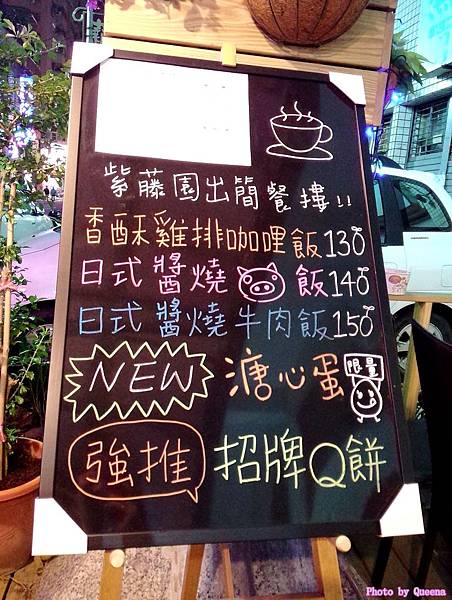 紫藤園出簡餐摟!!
香酥雞排咖哩飯130
日式醬燒飯140
日式醬燒牛肉飯150
NEW 溏心蛋 限量
強推 招牌Q餅
Photo by Queena